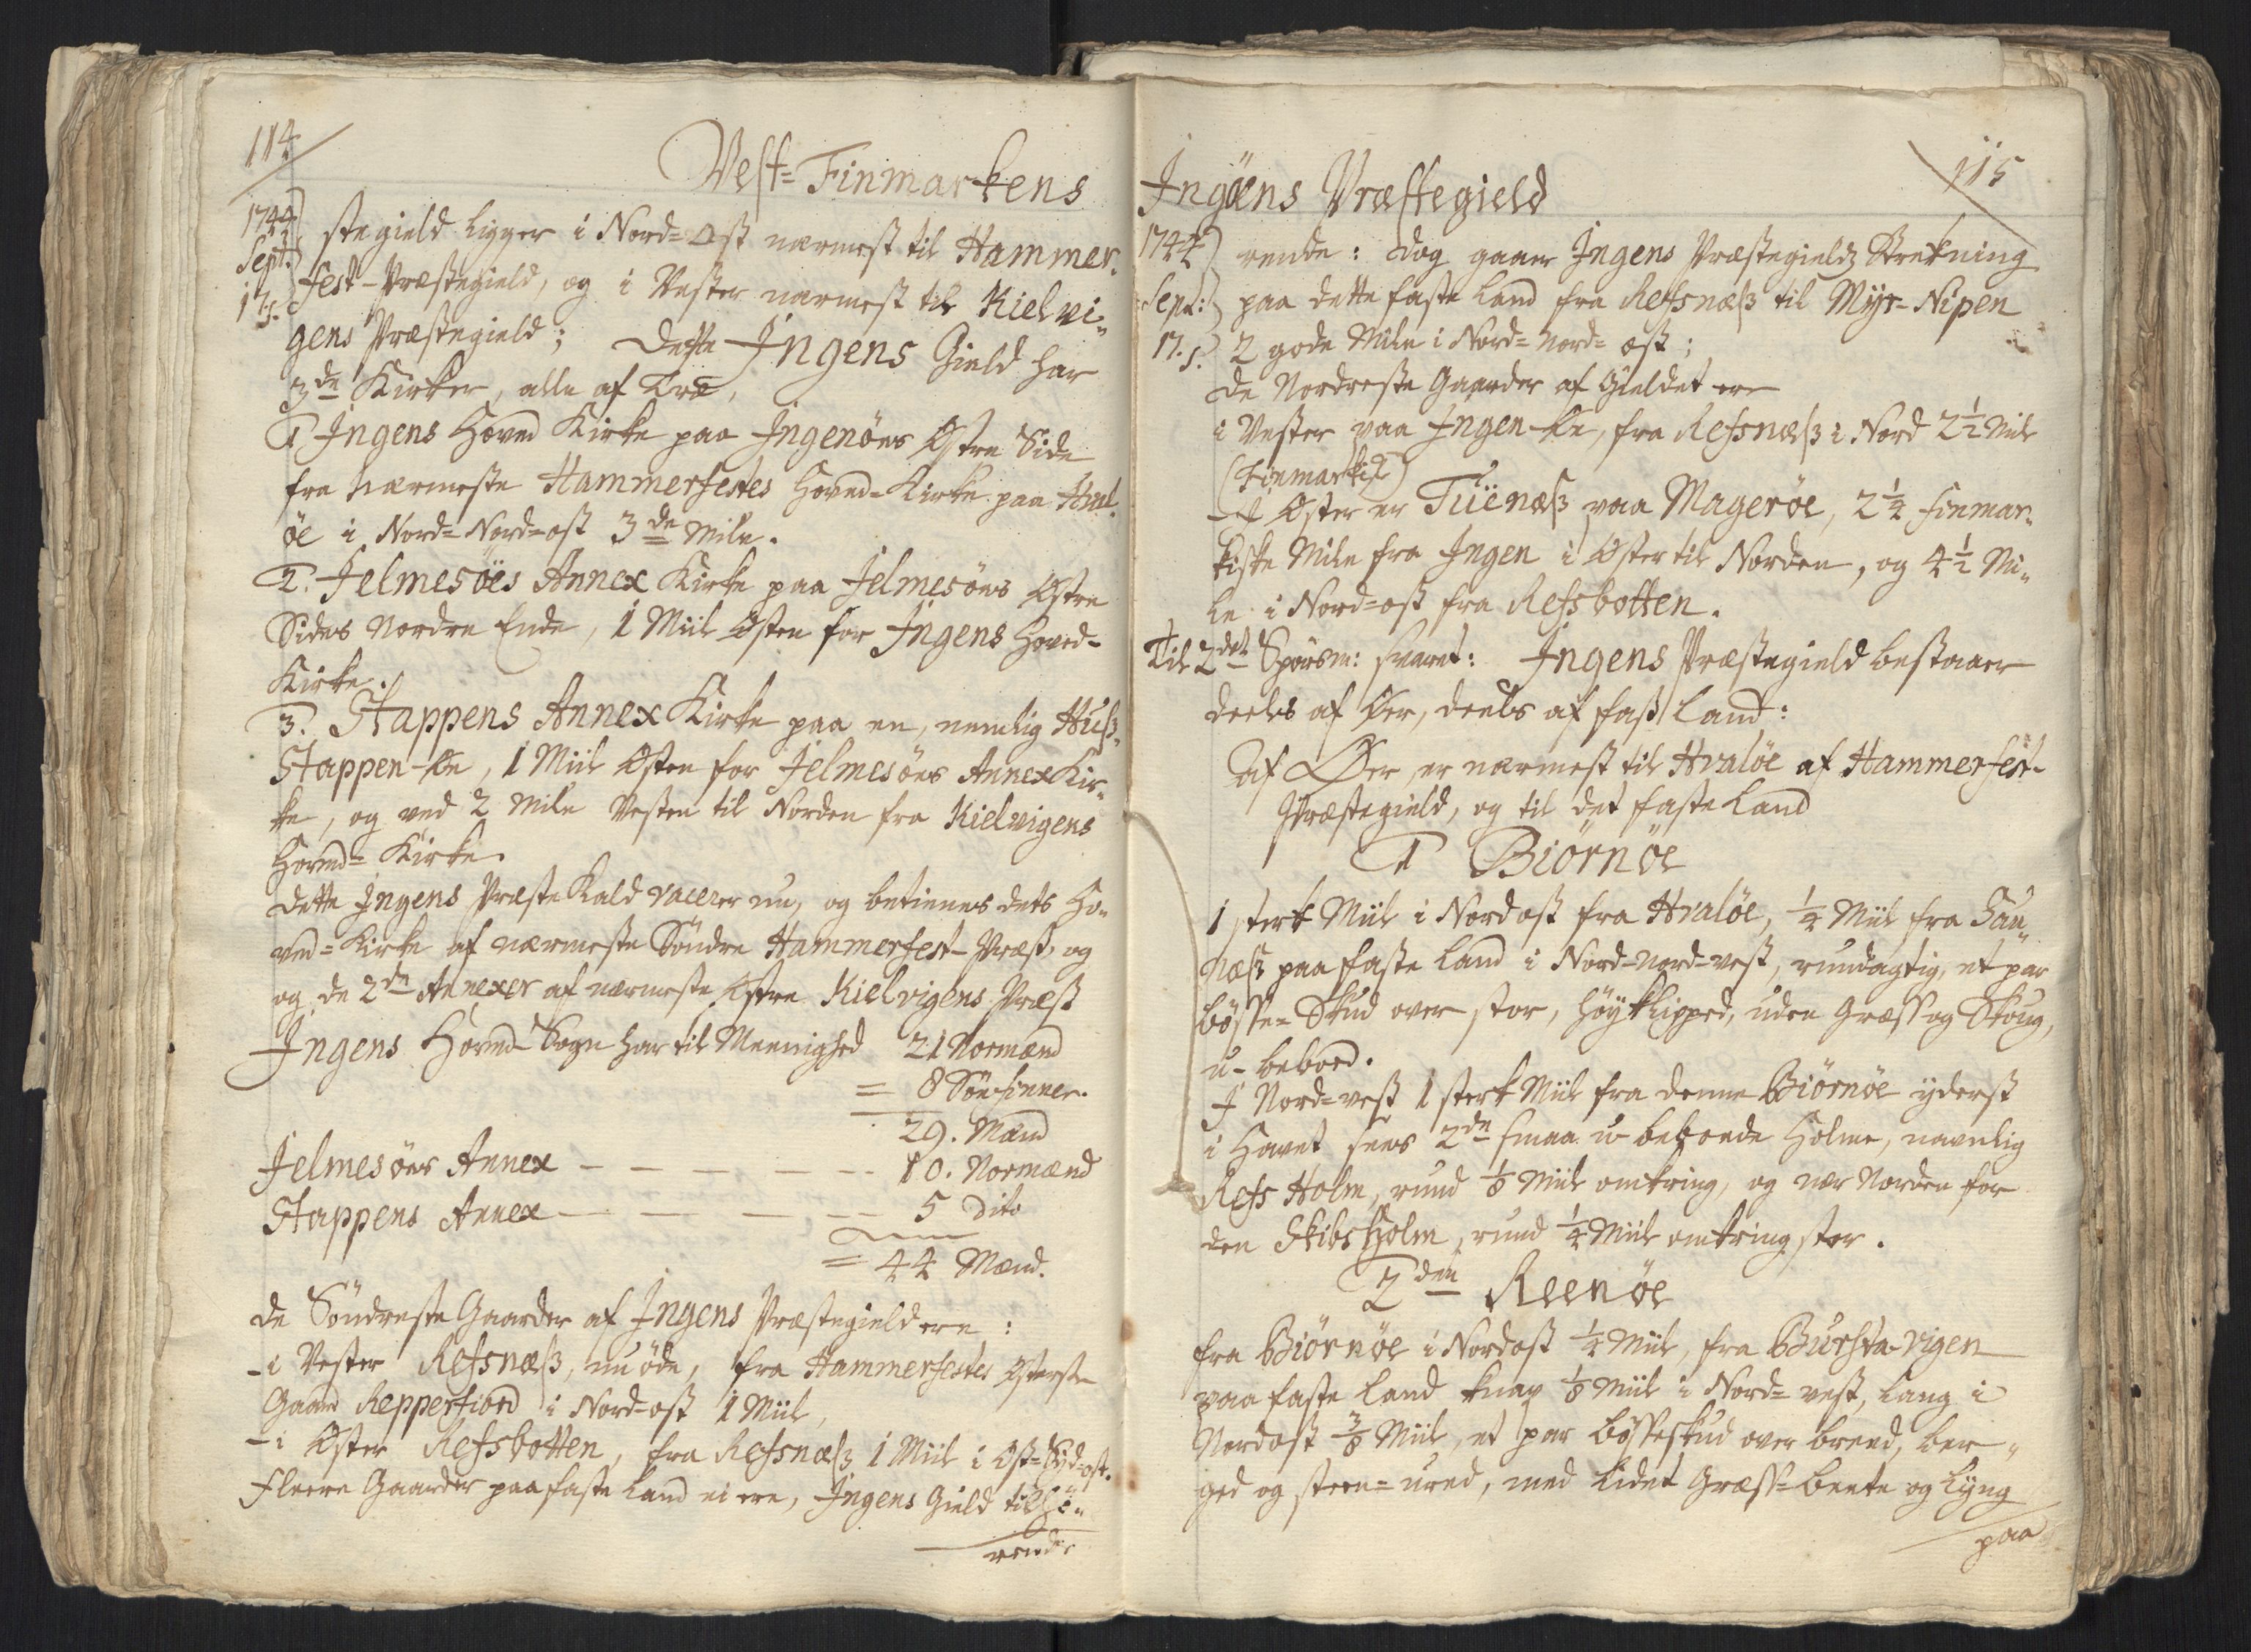 114
Vest-Finmarkens
1744 stegield ligger i Nord-ost nærmest til Hammer-
Sept: fest-Præstegield, og i Vester nærmest til Kielvi-
17. s. gens Præstegield; Dette Ingens Gield har
3de Kirker, alle af Træ,
1 Ingens Hoved Kirke paa Ingenöes Östre Side
fra nærmeste Hammerfestes Hoved-Kirke paa Hval-
öe i Nord-Nord-ost 3de Mile.
2. Jelmesöes Annex Kirke paa Jelmesöes Östre
Sides Nordre Ende, 1 Miil Östen for Ingens Hoved-
Kirke.
3. Stappens Annex Kirke paa en, nemlig Huß-
Stappen-Öe, 1 Miil Östen for Jelmesöes Annex Kir-
ke, og ved 2 Mile Vesten til Norden fra Kielvigens
Hoved-Kirke.
Dette Ingens Præste Kald vacerer nu, og betienes dets Ho-
ved-Kirke af nærmeste Söndre Hammerfest-Præst, og
og de 2de Annexer af nærmeste Östre Kielvigens Præst
Ingens Hoved-Sogn har til Meenighed 21 Normænd
= 8 Söe-finner.
29. Mænd
Jelmesöes Annex - - - - - 10. Normænd
Stappens Annex - - - - - 5 Dito
= 44 Mænd.
De Söndreste Gaarder af Ingens Præstegield ere:
- i Vester Refsnæß, nu öde, fra Hammerfestes Österste
Gaard Repperfiord i Nord-ost 1 Miil,
- i Öster Refsbotten, fra Refsnæß 1 Miil i Ost-Syd-ost.
Fleere Gaarder paa faste Land ei ere, Ingens Gield tilhö-
rende
115
Ingöens Præstegield
1744 rende: Dog gaaer Ingens Præstegields Strekning
Sept: paa dette faste Land fra Refsnæß til Myr-Nipen
17. s. 2 gode Mile i Nord-Nord-ost;
De Nordreste Gaarder af Gieldet ere
i Vester paa Ingen-Öe, fra Refsnæß i Nord 2 1/2 Mile
(Finmarkisk)
- I Öster er Tüenæß paa Mageröe, 2 1/4 finmar-
kiske Mile fra Ingen i Öster til Norden, og 4 1/2 Mi-
le i Nord-ost fra Refsbotten.
Til 2det Spörsm: svaret: Ingens Præstegield bestaaer
deels af Öer, deels af fast Land:
Af Öer er nærmest til Hvalöe af Hammerfest-
Præstegield, og til det faste Land
1 Biörnöe
1 sterk Miil i Nordost fra Hvalöe, 1/4 Miil fra
næß paa faste Land i Nord-nord-vest, rundagtig, et par
bösse-Skud over stor, höyklipped, uden Græss og Skoug,
u-beboed.
I Nord-vest 1 sterk Miil fra denne Biörnöe yderst
i Havet sees 2de smaa u-beboede Holme, navnlig
Refs Holm, rund 1/8 Miil omkring, og nær Norden for
den Skibsholm, rund 1/4 Miil omkring stor.
2den Reenöe
fra Biörnöe i Nordost 1/4 Miil, fra Bursta-vigen
paa faste Land knap 1/8 Miil i Nord-vest, lang i
Nordost 3/8 Miil, et par bösseskud over breed, ber-
ged og steen-ured, med lidet Græss-beete og Lyng
paa